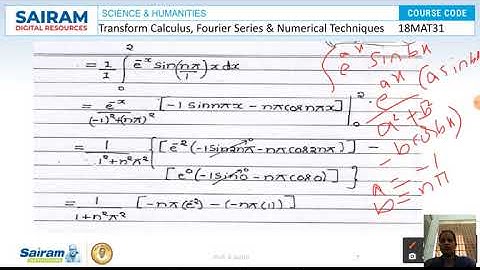 SAIRAM
DIGITAL RESOURCES
SCIENCE & HUMANITIES
Transform Calculus, Fourier Series & Numerical Techniques
COURSE CODE
18MAT31
= 1/1 ∫₀² e⁻ˣ sin(nπ/1)x dx
= e⁻ˣ/((-1)²+(nπ)²) [-1 sin nπx - nπ cos nπx] |₀²
= 1/(1²+n²π²) {[e⁻²(-1 sin2nπ⁰ - nπ cos2nπ)] -
[e⁰(-1 sin0⁰ - nπ cos0)]}
= 1/(1+n²π²) [-nπ(e⁻²) - (-nπ(1))]
∫ eᵃˣ sin bx
eᵃˣ/(a²+b²) (a sin bx
- b cos bx)
a = -1
b = nπ
Sairam
7